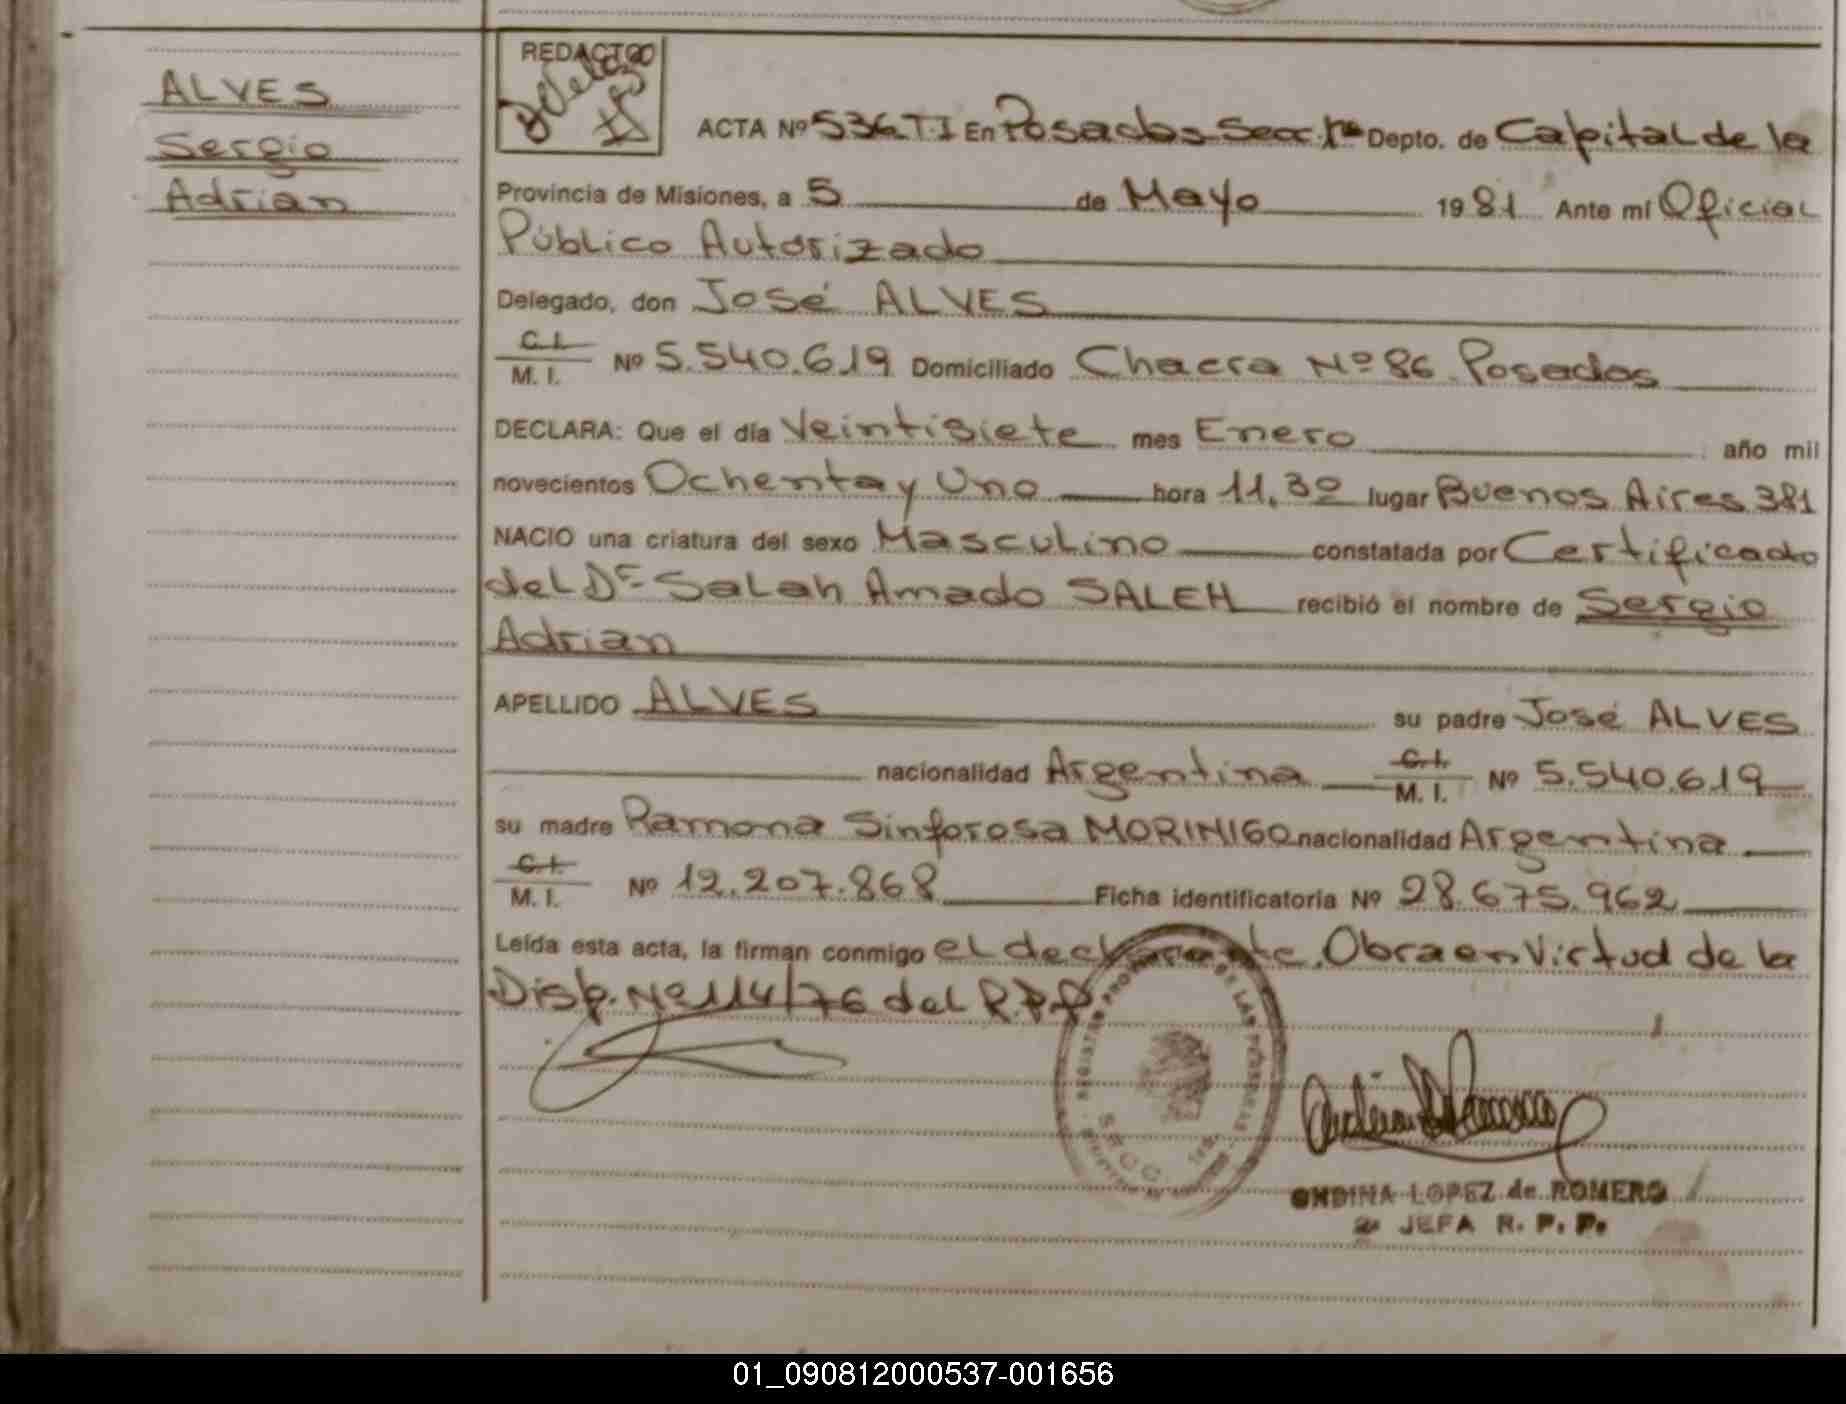 ALVES
Sergio
Adrian
REDACTOO
ACTA Nº 536 T.I En Posadas Secc. 1ª Depto. de Capital de la
Provincia de Misiones, a 5 de Mayo 1981 Ante mi Oficial
Público Autorizado
Delegado, don José ALVES
C.I. / M. I. Nº 5.540.619 Domiciliado Chacra Nº 86 Posadas
DECLARA: Que el día Veintisiete mes Enero año mil
novecientos Ochenta y Uno hora 11,30 lugar Buenos Aires 381
NACIO una criatura del sexo Masculino constatada por Certificado
del Dr Salah Amado SALEH recibió el nombre de Sergio
Adrian
APELLIDO ALVES su padre José ALVES
nacionalidad Argentina C.I. / M. I. Nº 5.540.619
su madre Ramona Sinforosa MORINIGO nacionalidad Argentina
C.I. / M. I. Nº 12.207.868 Ficha identificatoria Nº 28.675.962
Leída esta acta, la firman conmigo el declarante. Obra en Virtud de la
Disp. Nº 114/76 del R.P.P.
REGISTRO PROV. DE LAS PERSONAS
SECC. 1ra
ONDINA LOPEZ de ROMERO
JEFA R. P. P.
01_090812000537-001656